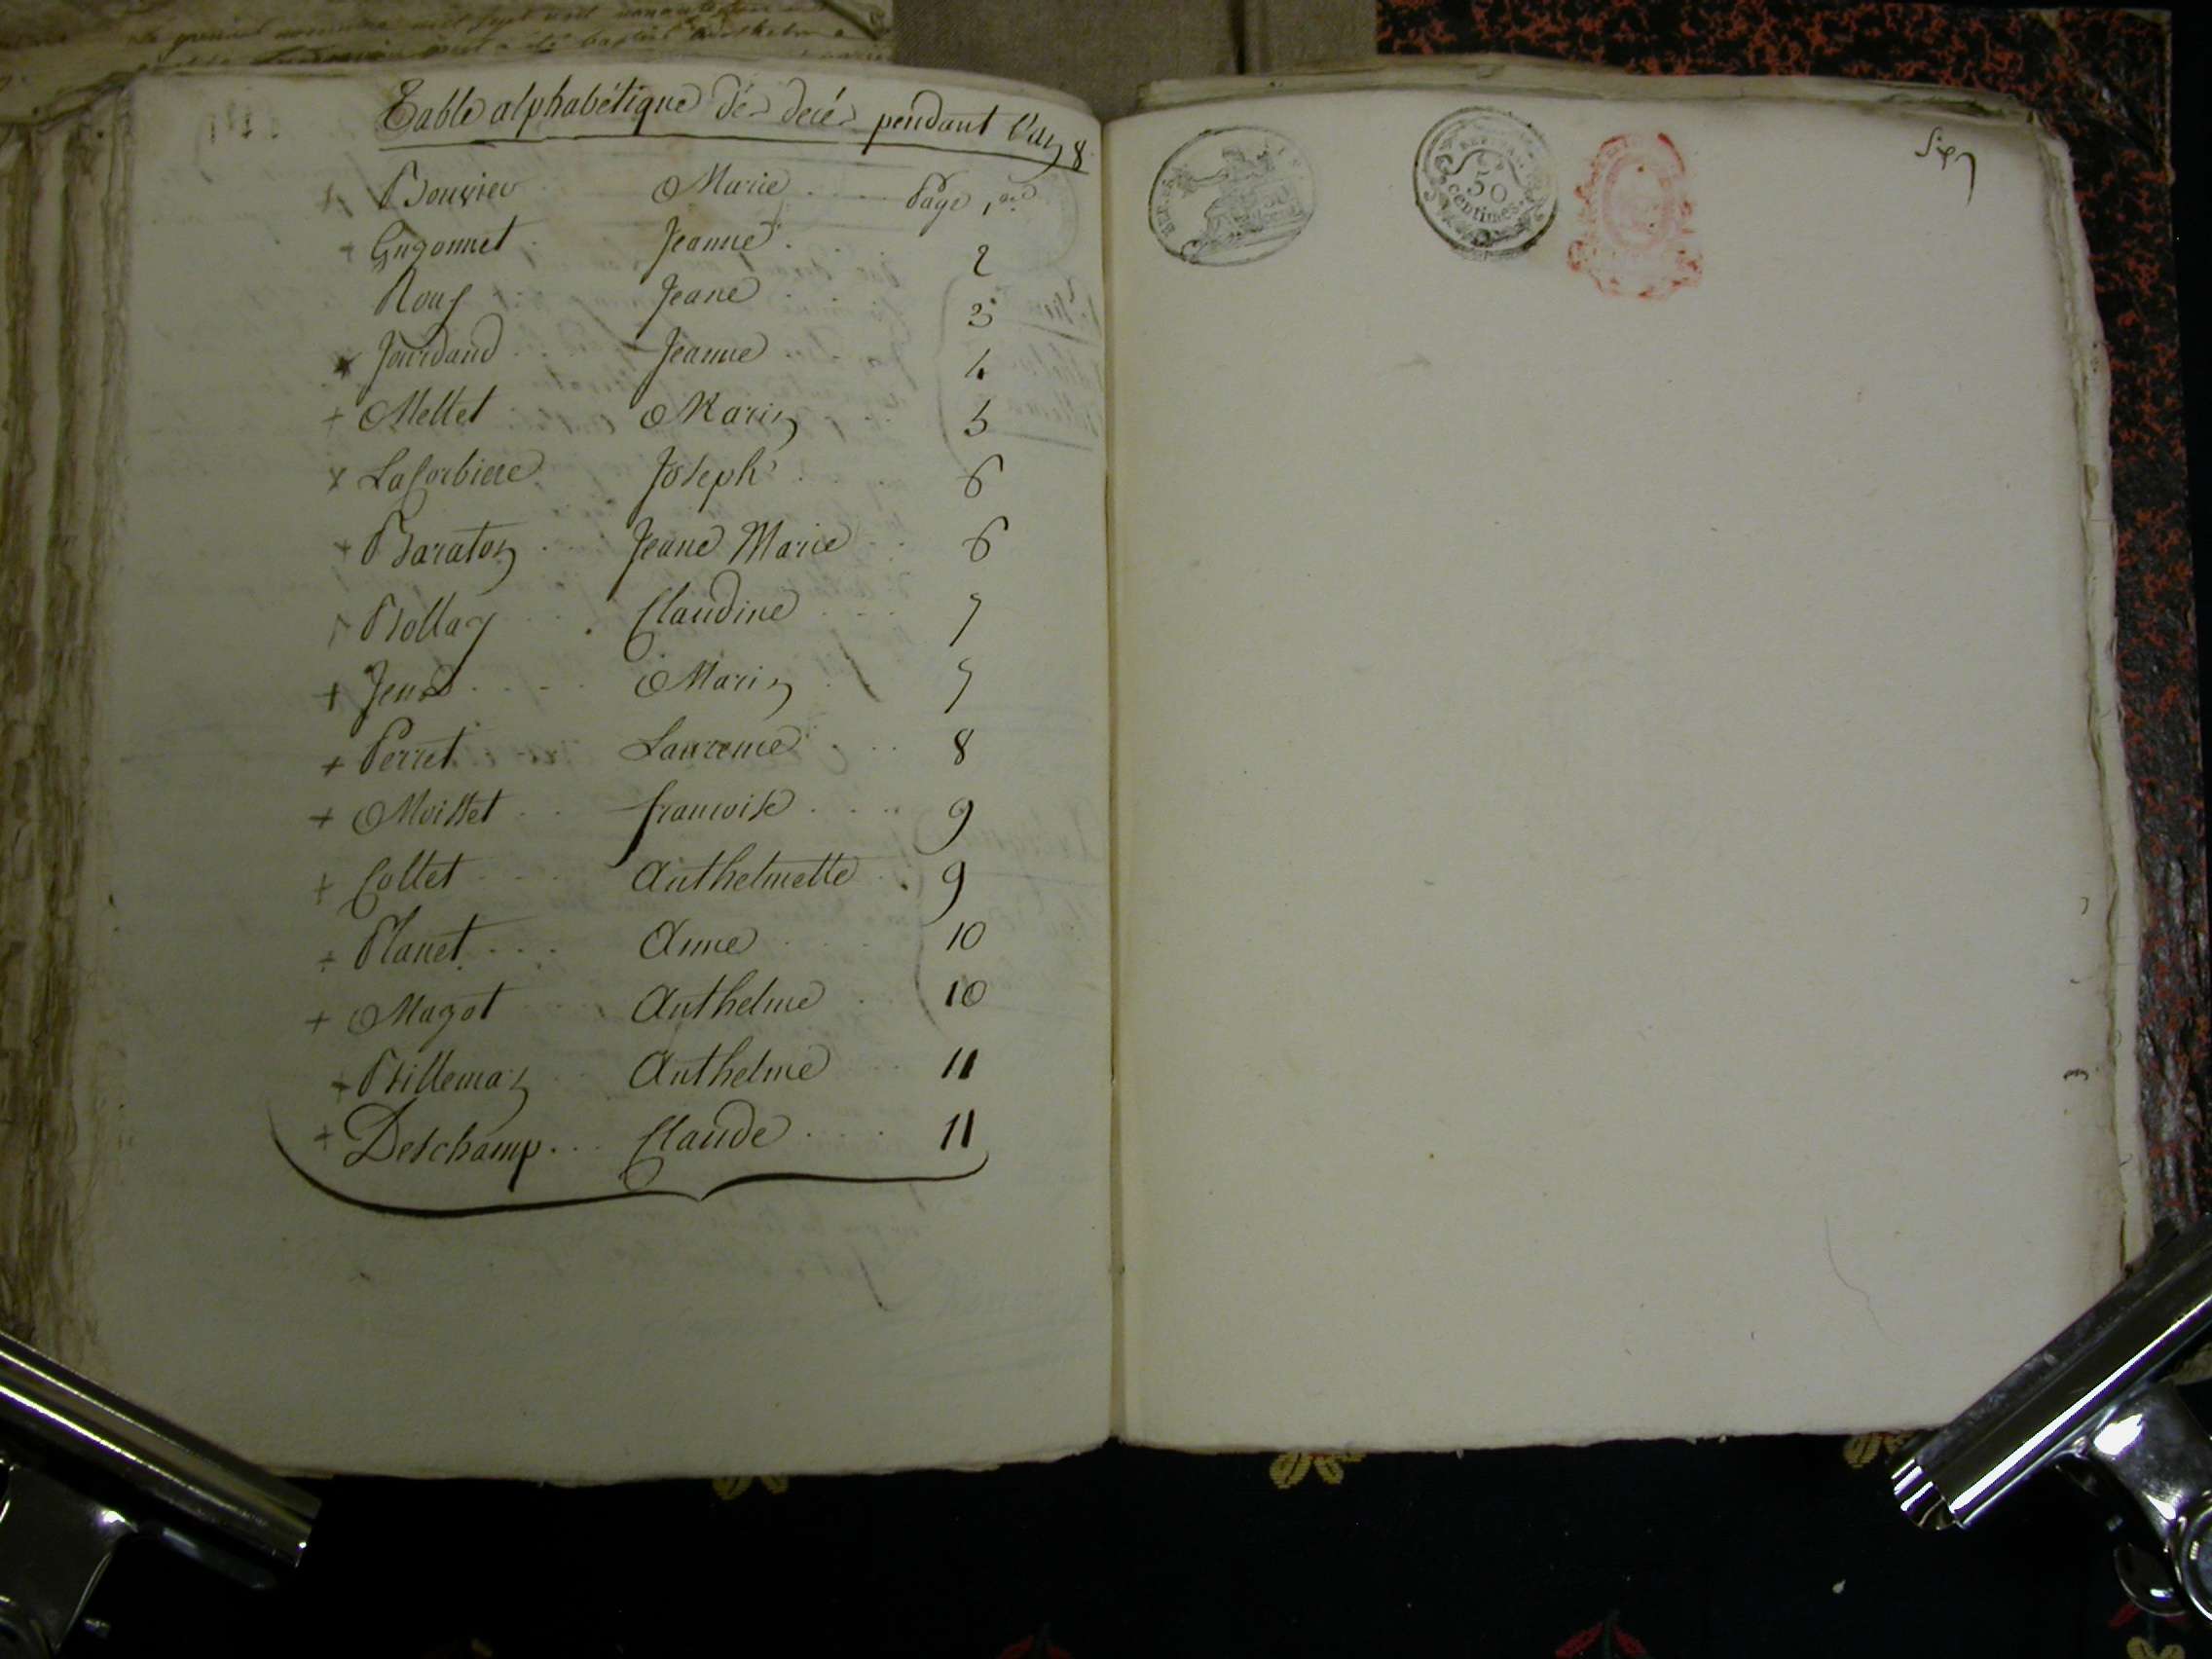 Table alphabétique dés decés pendant l'an 8
Bouvier Marie Page 1ere
Gugonnet Jeanne 2
Roux Jeane 3
Jourdand Jeanne 4
Mettet Marin 5
Laforbiere Joseph 6
Baraton Jeane Marie 6
Bollay Claudine 7
Jend Marin 7
Perret Laurence 8
Moisset francoise 9
Collet Anthelmette 9
Planet Anne 10
Magot Anthelme 10
Billemaz Anthelme 11
Deschamp Claude 11
50
centimes
Six